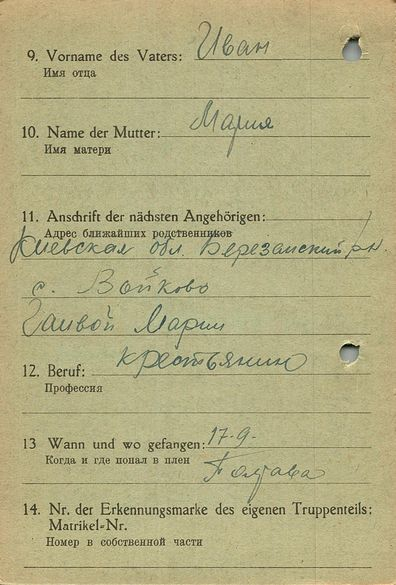 9. Vorname des Vaters: Иван
Имя отца
10. Name der Mutter: Мария
Имя матери
11. Anschrift der nächsten Angehörigen:
Адрес ближайших родственников
Киевская обл. Березанский рн.
с. Войково
Гаивой Марии
12. Beruf: крестьянин
Профессия
13 Wann und wo gefangen: 17-9-
Когда и где попал в плен
Полтава
14. Nr. der Erkennungsmarke des eigenen Truppenteils:
Matrikel-Nr.
Номер в собственной части